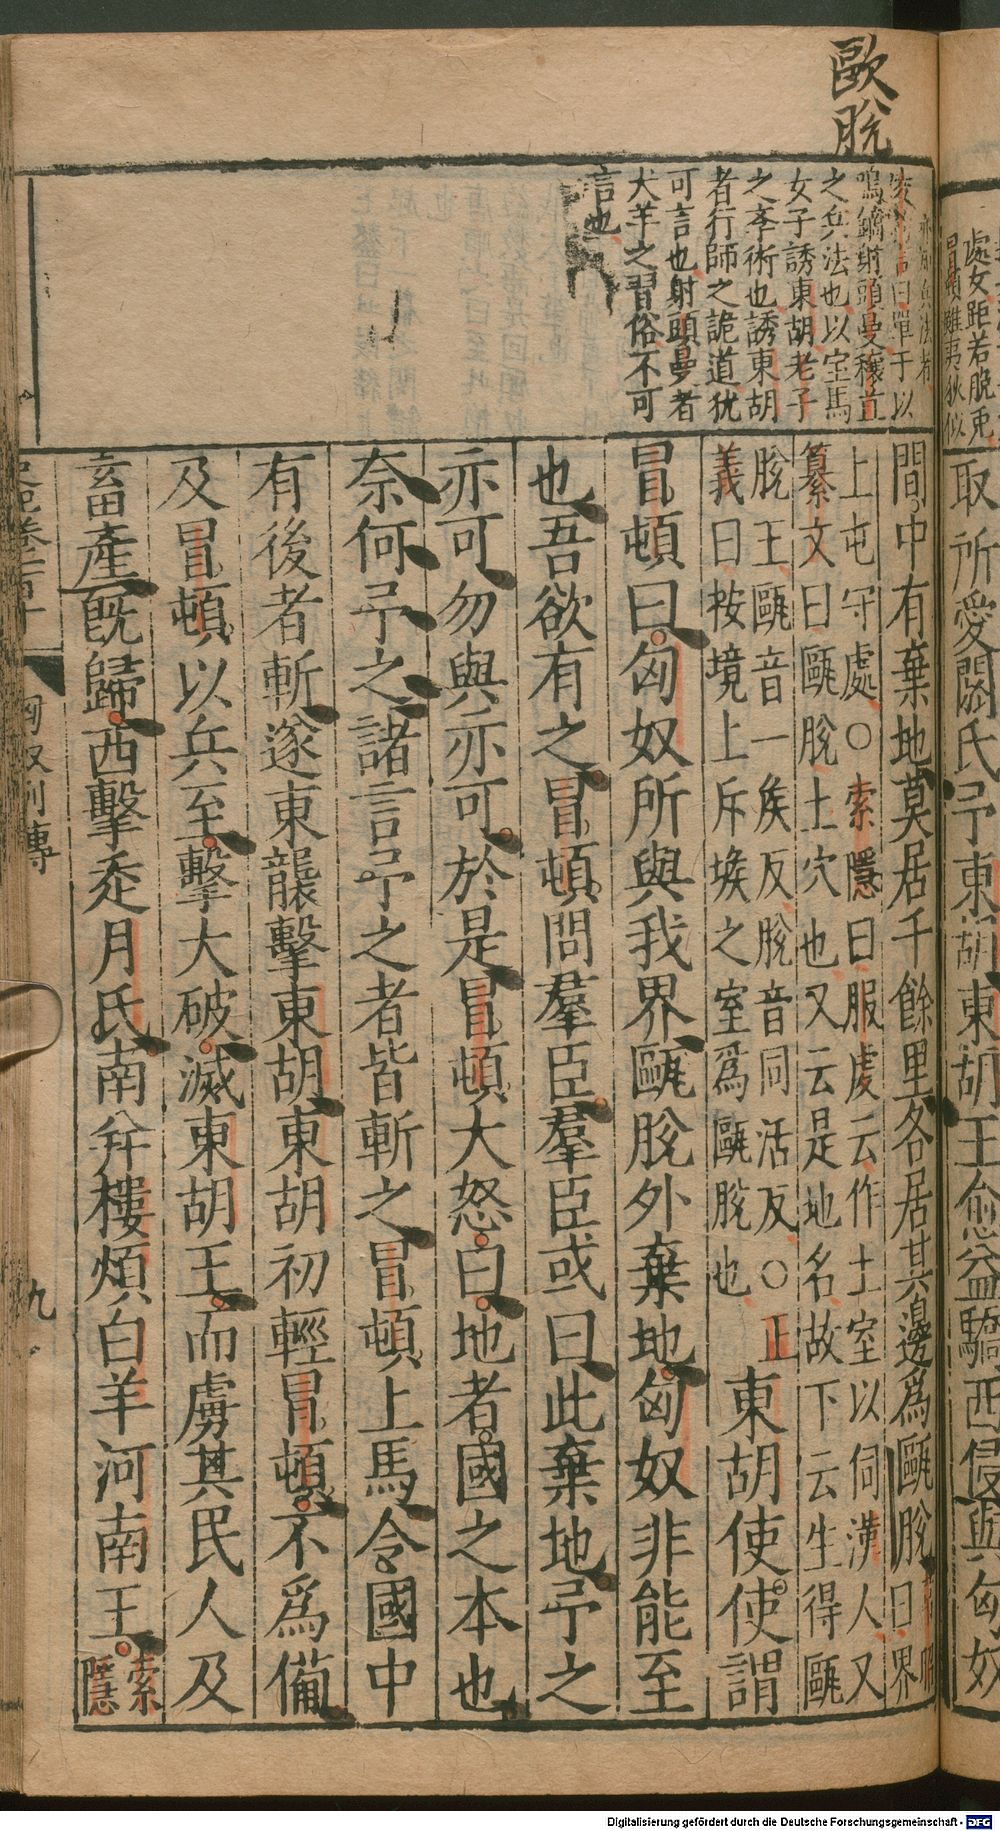 歐脫
鳴鏑射頭曼穰苴
之兵法也以室馬
女子誘東胡老子
之李術也誘東胡
者行師之詭道犹
可言也射頭曼者
犬羊之習俗不可
言也
取所愛閼氏予東胡東胡王愈益驕西侵與匈奴
間中有棄地莫居千餘里各居其邊爲甌脫
曰界
上屯守處○索隱曰服虔云作土室以伺漢人又
纂文曰甌脫土穴也又云是地名故下云生得甌
脫王甌音一侯反脫音同活反○正
義曰按境上斥堠之室爲甌脫也
東胡使使謂
冒頓曰匈奴所與我界甌脫外棄地匈奴非能至
也吾欲有之冒頓問羣臣羣臣或曰此棄地予之
亦可勿與亦可於是冒頓大怒曰地者國之本也
奈何予之諸言予之者皆斬之冒頓上馬令國中
有後者斬遂東襲擊東胡東胡初輕冒頓不爲備
及冒頓以兵至擊大破滅東胡王而虜其民人及
畜產既歸西擊走月氏南并樓煩白羊河南王
索
隱
匈奴列傳
九
Digitalisierung gefördert durch die Deutsche Forschungsgemeinschaft - DFG